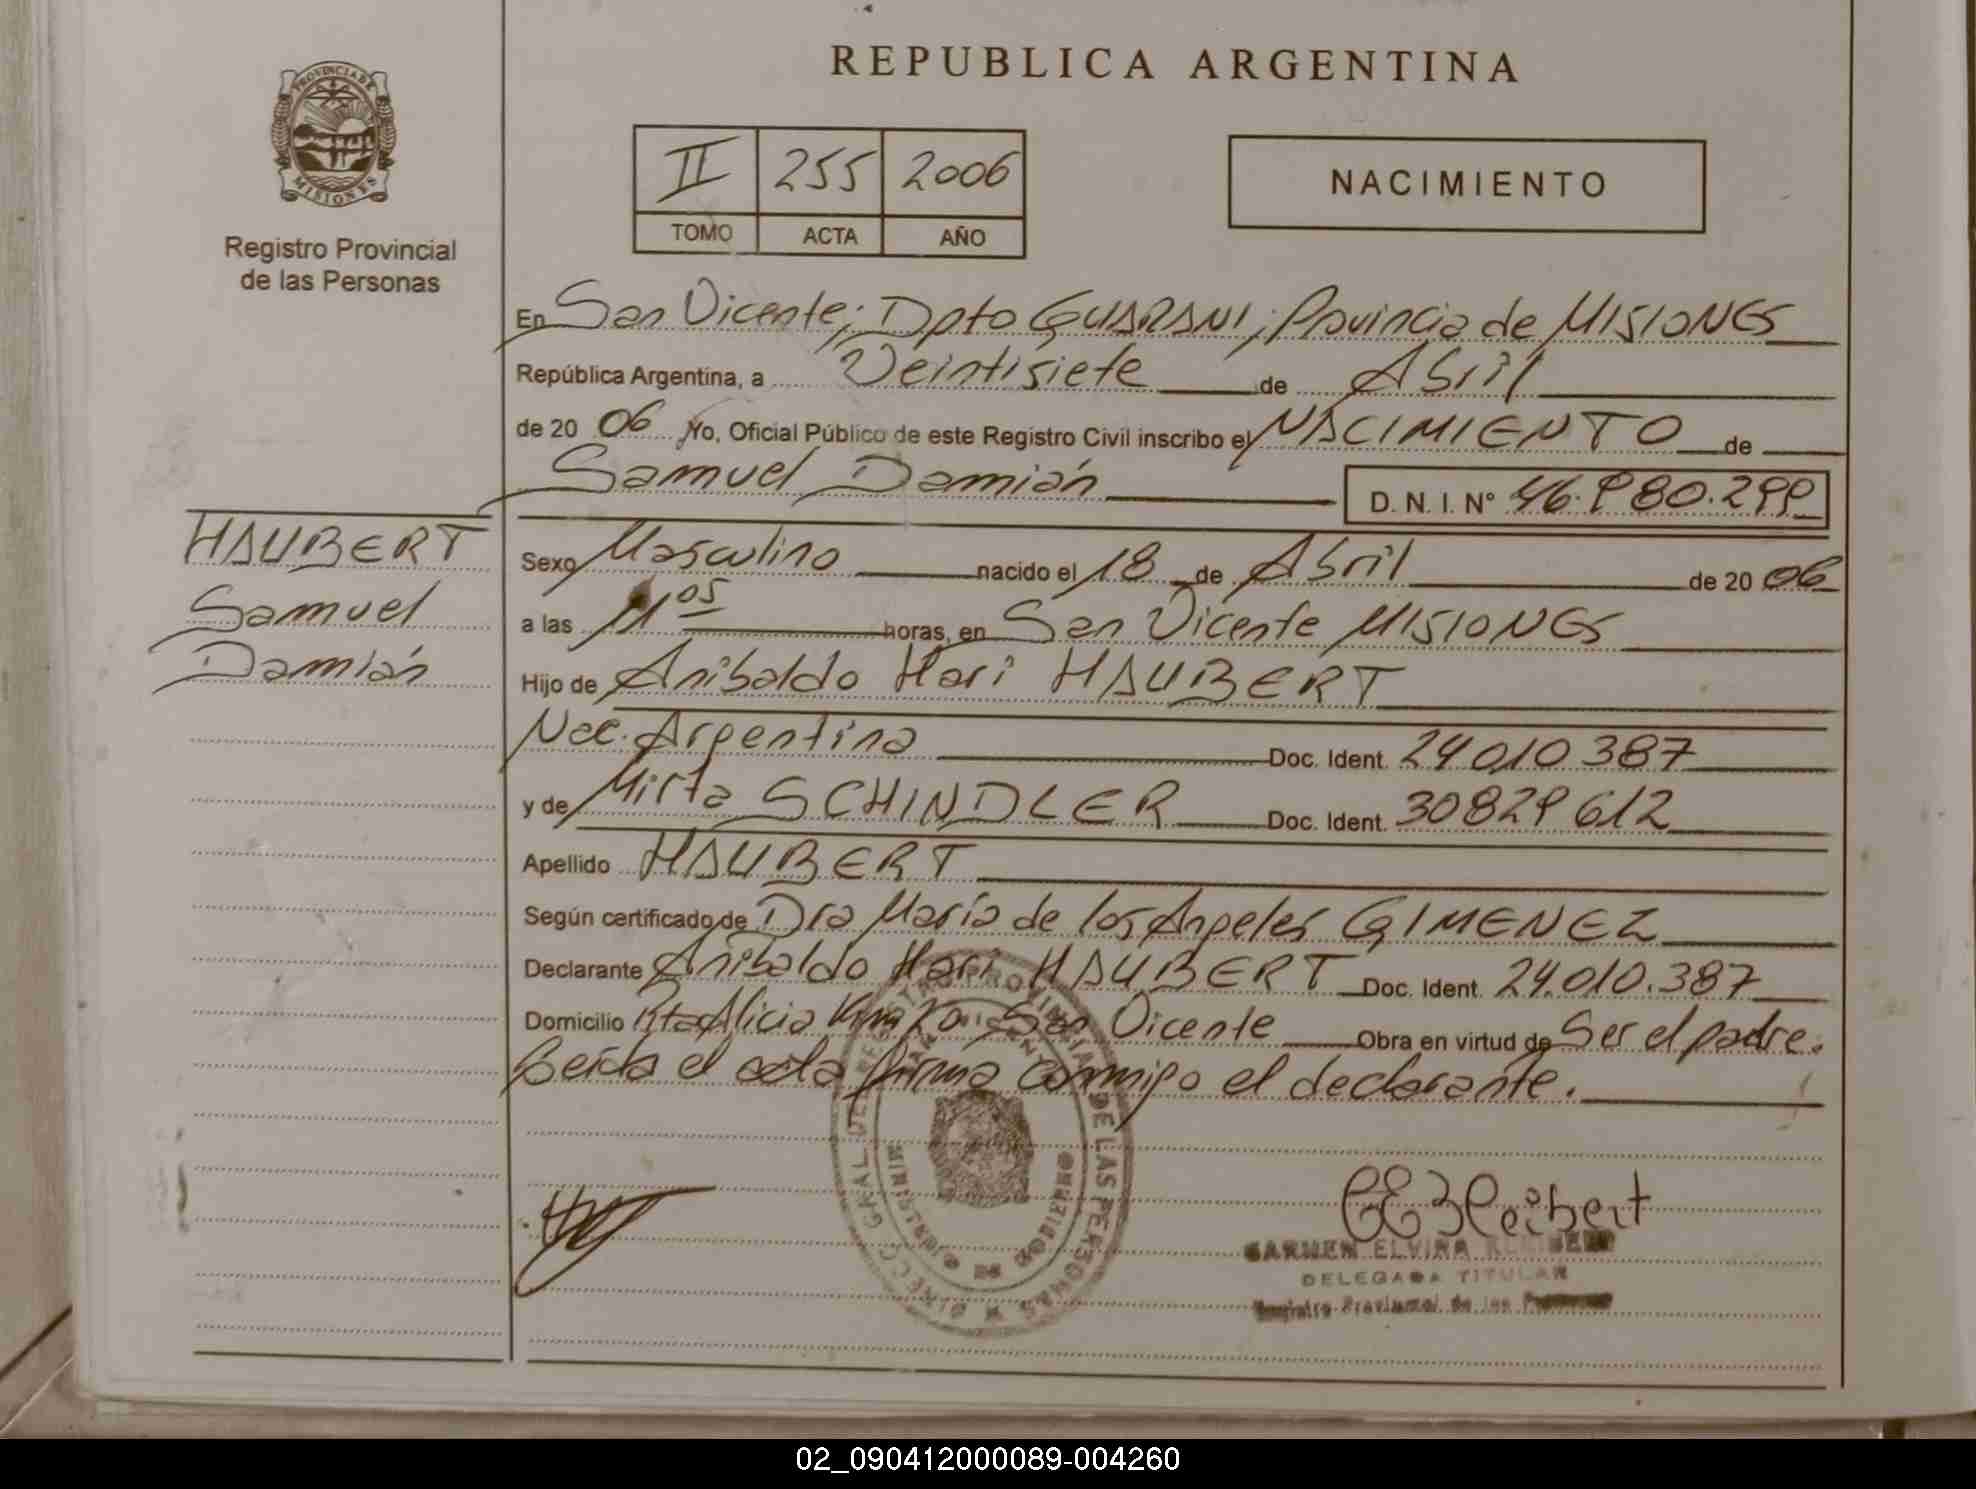 REPUBLICA ARGENTINA
PROVINCIA DE MISIONES
Registro Provincial
de las Personas
II 255 2006
TOMO ACTA AÑO
NACIMIENTO
En San Vicente; Dpto GUARANI; Provincia de MISIONES
República Argentina, a Veintisiete de Abril
de 20 06 Yo, Oficial Público de este Registro Civil inscribo el NACIMIENTO de
Samuel Damián
D. N. I. N° 46.980.299
HAUBERT
Samuel
Damián
Sexo Masculino nacido el 18 de Abril de 20 06
a las 11 05 horas, en San Vicente MISIONES
Hijo de Anibaldo Hari HAUBERT
Nac. Argentina Doc. Ident. 24010387
y de Mirta SCHINDLER Doc. Ident. 30829612
Apellido HAUBERT
Según certificado de Dra María de los Angeles GIMENEZ
Declarante Anibaldo Hari HAUBERT Doc. Ident. 24.010.387
Domicilio Alicia San Vicente Obra en virtud de Ser el padre.
el acta firma conmigo el declarante.
PROVINCIAL DE LAS PERSONAS
MINISTERIO DE GOBIERNO
CARMEN ELVIRA
DELEGADA TITULAR
Registro Provincial de las
02_090412000089-004260